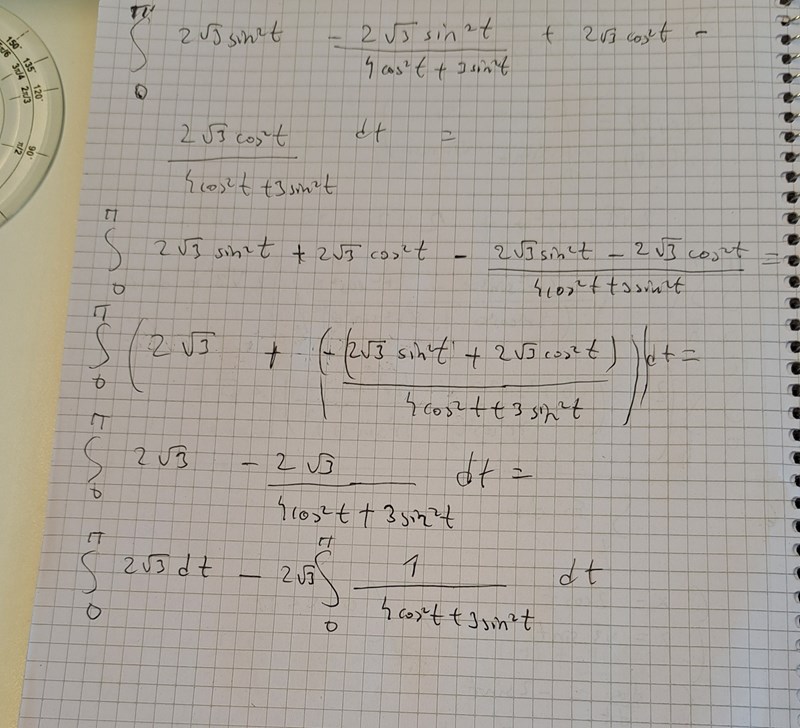 150° 135° 120° 90°
5π/6 3π/4 2π/3 π/2
∫₀^π 2√3 sin²t - (2√3 sin²t)/(4cos²t + 3sin²t) + 2√3 cos²t -
(2√3 cos²t)/(4cos²t + 3sin²t) dt =
∫₀^π 2√3 sin²t + 2√3 cos²t - (2√3 sin²t - 2√3 cos²t)/(4cos²t + 3sin²t) =
∫₀^π (2√3 + (-(2√3 sin²t + 2√3 cos²t)/(4cos²t + 3sin²t))) dt =
∫₀^π 2√3 - (2√3)/(4cos²t + 3sin²t) dt =
∫₀^π 2√3 dt - 2√3 ∫₀^π 1/(4cos²t + 3sin²t) dt